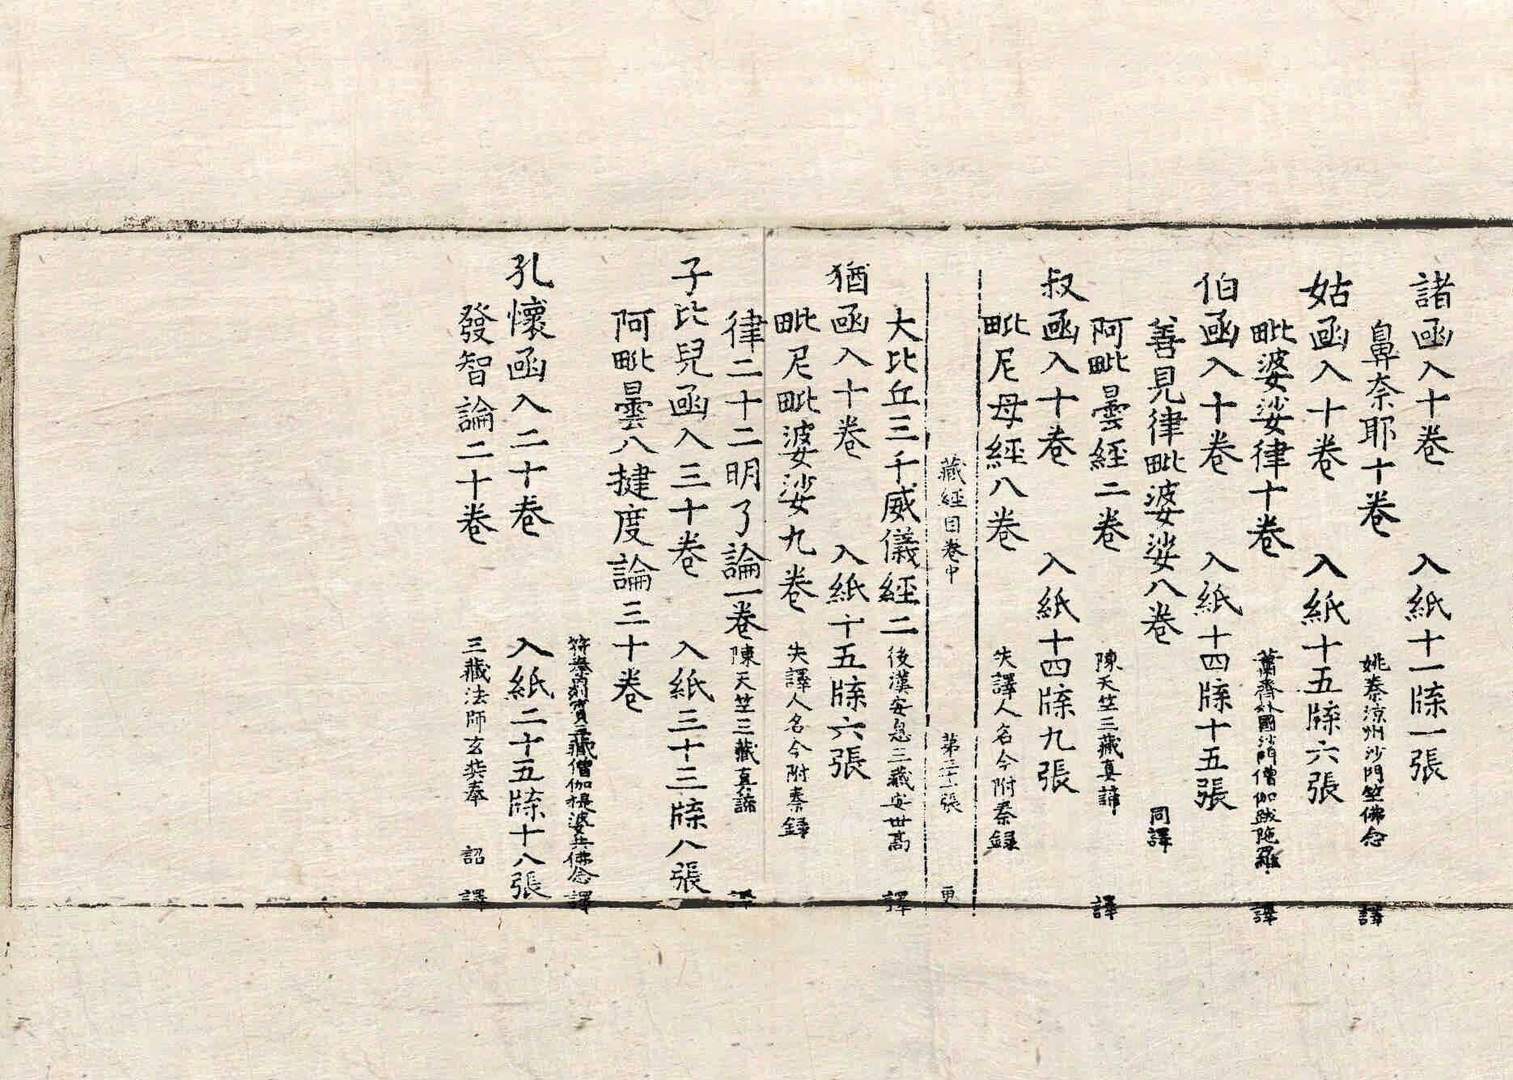 諸函入十卷　入紙十一牒一張
鼻奈耶十卷　姚秦涼州沙門竺佛念　譯
姑函入十卷　入紙十五牒六張
毗婆娑律十卷　蕭齊外國沙門僧伽跋陁羅　譯
伯函入十卷　入紙十四牒十五張
善見律毗婆娑八卷　同譯
阿毗曇經二卷　陳天竺三藏真諦　譯
叔函入十卷　入紙十四牒九張
毗尼母經八卷　失譯人名今附秦録
藏經目卷中　第三十一張　更
大比丘三千威儀經二　後漢安息三藏安世高　譯
猶函入十卷　入紙十五牒六張
毗尼毗婆娑九卷　失譯人名今附秦録
律二十二明了論一卷　陳天竺三藏真諦　譯
子比兒函入三十卷　入紙三十三牒八張
阿毗曇八揵度論三十卷　符秦罽賓三藏僧伽提婆共佛念　譯
孔懷函入二十卷　入紙二十五牒十八張
發智論二十卷　三藏法師玄奘奉　詔　譯